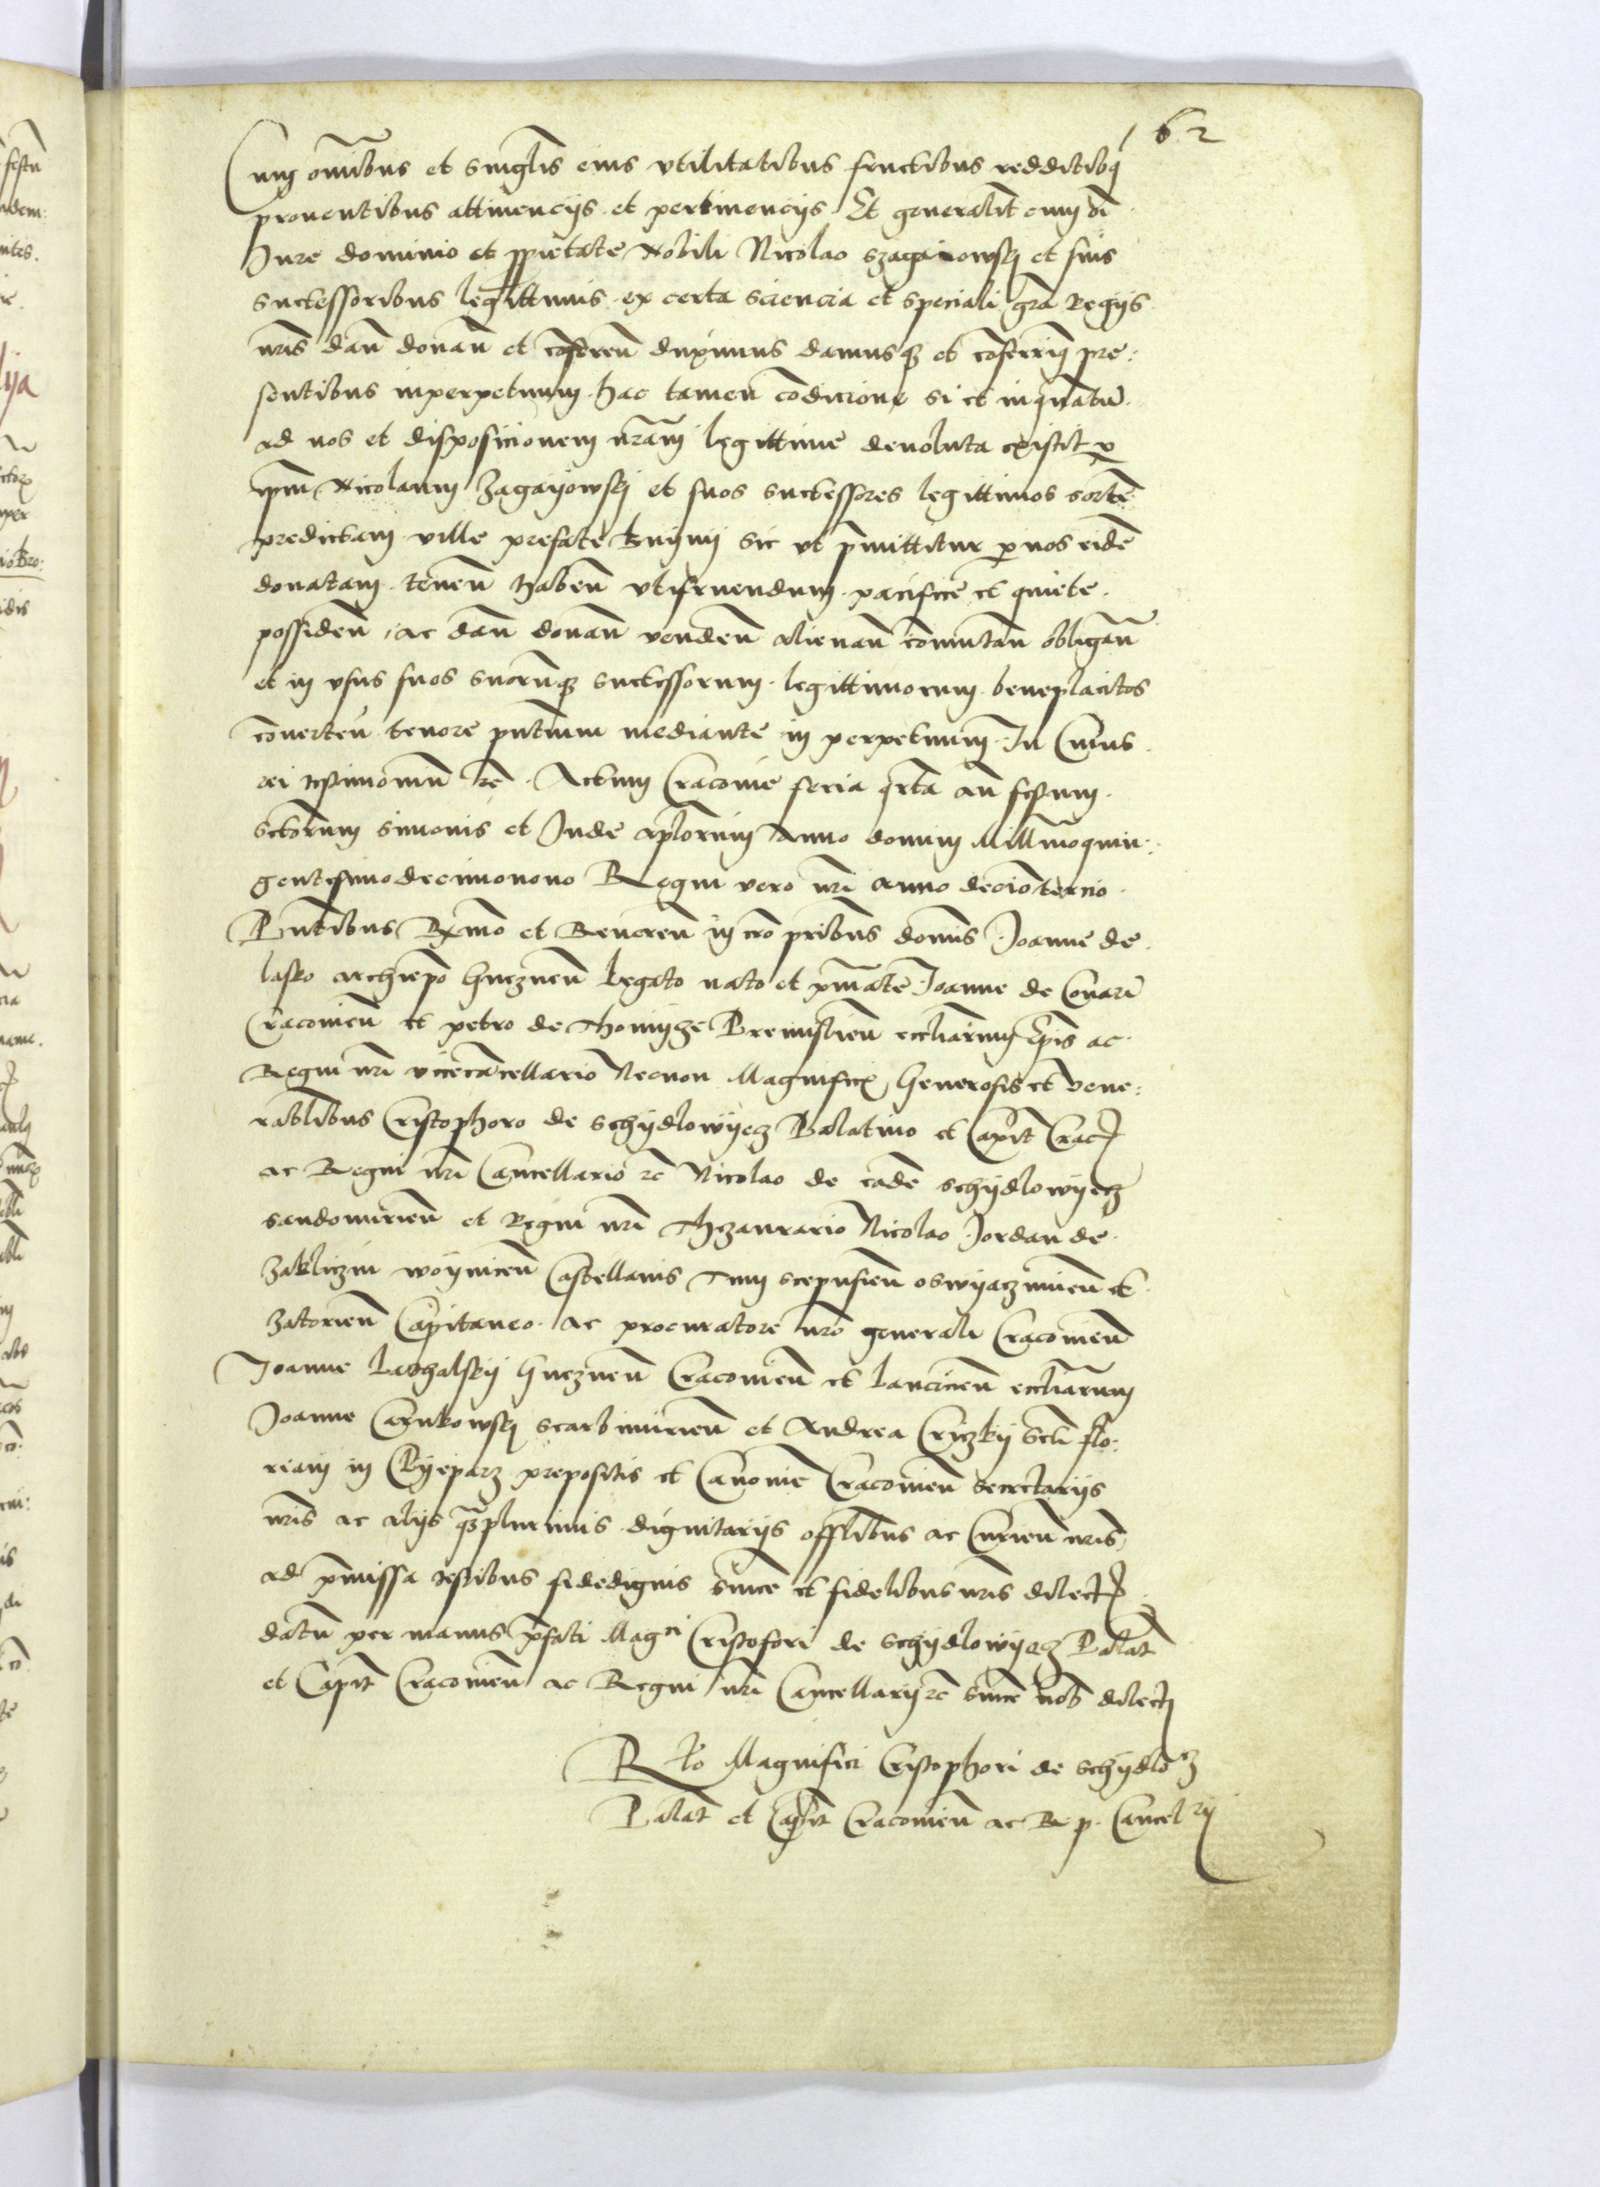 62
Cum omibus et singlis eius vtilitatibus fructibus redditibq
prouentibus attinencijs et pertinencijs Et generalit cum oi
Jure dominio et ppietate Nobili Nicolao Szagaiowskj et suis
successoribus legittimis ex certa sciencia et speciali gra Regijs
nris dan donan et coferen duximus damusq et coferim pre:
sentibus inperpetuum hac tamen condicione si et inquatu
ad nos et disposicionem nram legittime deuoluta existit p
ipm Nicolaum Zagayowskj et suos successores legittimos sorte
predictam ville prefate sic ut pmittitur p nos eide
donatam tenen haben vtifruendum pacifice et quiete
possiden ac dan donan venden alienan comutan obligan
et in vsus suos suorumq successorum legittimorum beneplacitos
couerten tenore pntium mediante in perpetuum In Cuius
rei testimoniu rc Actum Cracouie feria qrta an festum
sctorum Simonis et Jude aplorum Anno domini Millmoquin:
gentesimodecimonono Regni vero nri anno deciotercio
Pntibus Rxmo et Reueren in cro pribus domis Joanne de
lasko archiepo Gneznen Legato nato et pmate Joanne de Conari
Cracouien et petro de Thomijcze Premislien eccliarum Epis ac
Regni nri vicecancellario Necnon Magnificis Generosis et vene:
rablibus Cristophoro de Schijdlowyecz Palatino et Capit Crac
ac Regni nri Cancellario rc Nicolao de eade Schijdlowyecz
Sandomirien et Regni nri Thezaurario Nicolao Jordan de
Zakliczin woynicen Castellanis Tum Scepusien oswyaczimien et
Zatorien Capitaneo ac procuratore nro generali Cracouien
Joanne Lathalskij Gneznen Cracouien et Lancicien eccliarum
Joanne Carnkowskj Scarbimirien et Andrea Criczkij scti flo:
riani in Clyeparz prepositis et Canonic Cracouien Secretarijs
nris ac alijs qzplurimis dignitarijs offlibus ac Curien nris
ad pmissa testibus fidedignis since et fidelibus nris dilectis
datu per manus pfati Magci Cristofori de Schijdlowyecz Palat
et Capit Cracouien ac Regni nri Cancellarij rc since nob dilecti
Rlo Magnifici Cristophori de Schijdlocz
Palat et Capit Cracouien ac R p Cancelrij